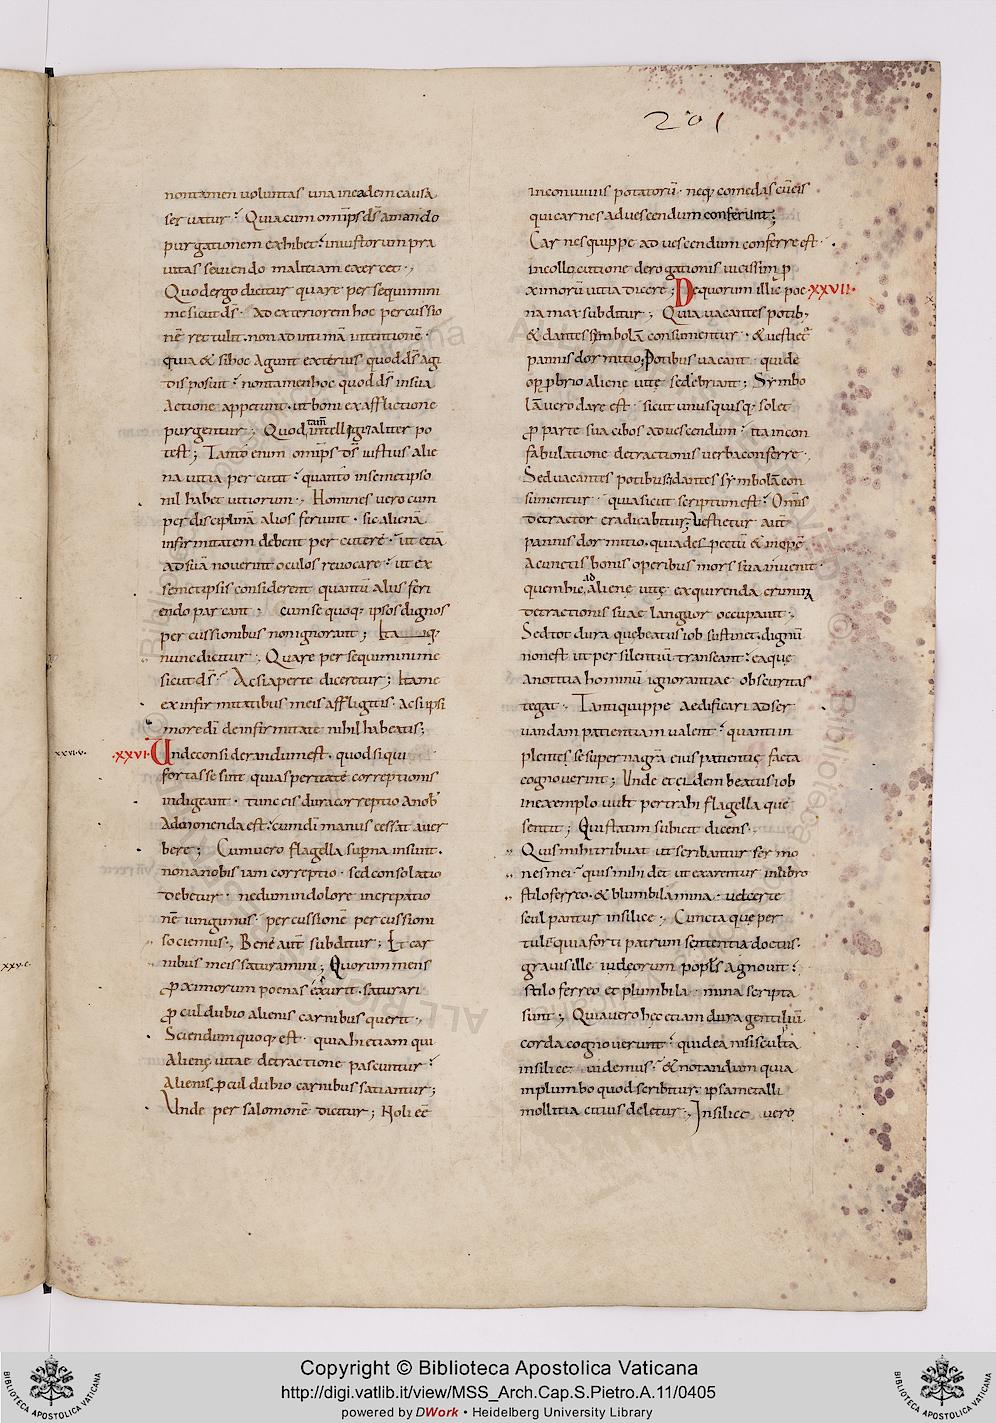 201
non tamen uoluntas una in eadem causã
seruatur; Quia cum omp̃s ds̃ amando
purgationem exhibet; iniustorum pra
uitas seuiendo malitiam exercet.,
Quod ergo dicitur quare persequimini
me sicut ds̃. ad exteriorem hoc percussio
nẽ rettulit. non ad intimã intentionẽ.
quia & si hoc agunt exterius quod ds̃ agi
disposuit; non tamen hoc quod ds̃ in sua
Actione appetunt. ut boni ex afflictione
purgentur; Quod tam̃ intellegi aliter po
test; Tanto enim omp̃s ds̃ iustius alie
na uitia percutit; quanto in semetipso
nil habet uitiorum., Homines uero cum
per disciplinã alios feriunt. sic alienã
infirmitatem debent percutere. ut etiã
ad suã nouerint oculos reuocare; ut ex
semetipsis considerent quantũ alios feri
endo parcant; cum se quoq; ipsos dignos
percussionibus non ignorant; Ita itaq;
nunc dicitur. Quare persequimini me
sicut ds̃; Ac si aperte diceretur; Ita me
ex infirmitatibus meis affligitis. Ac si ipsi
more di de infirmitate nihil habeatis;
xxvi.v.
.XXVI. Unde considerandum est. quod si qui
fortasse sint quias peritate correptionis
indigeant. tunc eis dura correptio a nob̃
Admonenda est; cum di manus cessat auer
bere; Cum uero flagella superna insunt.
non a nobis iam correptio. sed consolatio
debetur. ne dum in dolore increpatio
nẽ iungimus. percussionẽ percussioni
sociemus., Bene aut̃ subditur; Et car
xxv.c.
nibus meis saturamini; Quorum mens
ꝓximorum poenas exurit. saturari
ꝓcul dubio alienis carnibus querit.,
Sciendum quoq; est. quia hi etiam qui
Alienę uitae detractione pascuntur;
Alienis ꝓcul dubio carnibus satiantur;
Unde per salomonẽ dicitur; Noli ee͂
in conuiuiis potatorũ. neq; comedas cũ eis
qui carnes ad uescendum conferunt;
Carnes quippe ad uescendum conferre est.
in collocutione derogationis uicissim p̱
ximorũ uitia dicere; De quorum illic poe .XXVII.
na mox subditur; Quia uacantes potib;
& dantes simbolã consumentur. & uestiet̃
pannis dormitio; Potibus uacant. qui de
opp̱brio alienę uitę se debriant; Symbo
lã uero dare est. sicut unusquisq; solet
ꝓ parte sua cibos ad uescendum; ita in con
fabulatione detractionis uerba conferre.,
Sed uacantes potibus & dantes symbolã con
sumentur. quia sicut scriptum est; Omis̃
detractor eradicabitur; Vestietur aut̃
pannis dormitio. quia despectũ & inopẽ
A cunctis bonis operibus mors sua inuenit.
quem hic ad alienę uitę exquirenda crimina
detractionis suae languor occupauit.,
Sed tot dura que beatus iob sustinet. dignũ
non est ut per silentiũ transeant; eaquę
a notitia hominũ ignorantiae obscuritas
tegat. Tanti quippe aedificari ad ser
uandam patientiam ualent; quanti im
plentes se supernagrã eius patientię facta
cognouerint; Unde et eisdem beatus iob
in exemplo uult pertrahi flagella que
sentit; Qui statim subicit dicens.
Quis mihi tribuat ut scribantur sermo
nes mei; quis mihi det ut exarentur in libro
stilo ferreo. & plumbi lamina. uel certe
sculpantur in silice; Cuncta quę per
tulit quia forti patrum sententia doctus.
grauis ille iudęorum popl̃s agnouit;
stilo ferreo et plumbi lamina scripta
sunt; Quia uero hęc etiam dura gentiliũ
corda cognouerunt; quid ea nisi sculpta
in silice uidemus; & notandum quia
in plumbo quod scribitur. ipsa metalli
mollitia citius deletur., In silice uero
Copyright © Biblioteca Apostolica Vaticana
http://digi.vatlib.it/view/MSS_Arch.Cap.S.Pietro.A.11/0405
powered by DWork • Heidelberg University Library
BIBLIOTECA APOSTOLICA VATICANA
BIBLIOTECA APOSTOLICA VATICANA